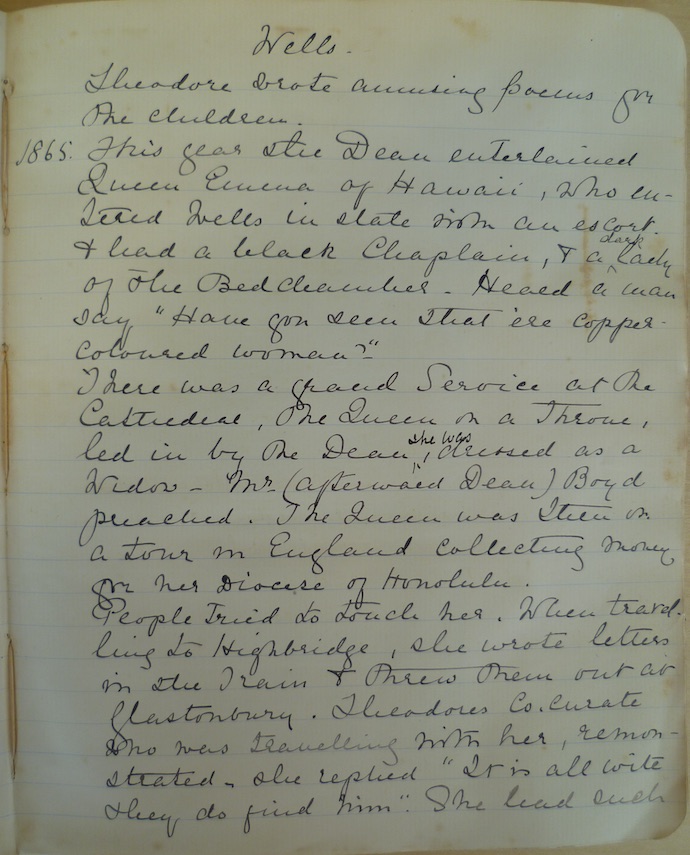 Wells.
Theodore wrote amusing poems for
the children.
1865. This year the Dean entertained
Queen Emma of Hawaii, who en-
tered Wells in state with an escort.
& had a black Chaplain, & a dark lady
of the Bedchamber - Heard a man
say "Have you seen that 'ere copper-
coloured woman?"
There was a grand Service at the
Cathedral, the Queen on a Throne,
led in by the Dean, she was dressed as a
Widow - Mr. (afterward Dean) Boyd
preached. The Queen was then on
a tour in England collecting money
for her Diocese of Honolulu.
People tried to touch her. When travel-
ling to Highbridge, she wrote letters
in the Train & threw them out at
Glastonbury. Theodores Co.curate
who was travelling with her, remon-
strated - she replied "It is all wite
they do find him". She had such